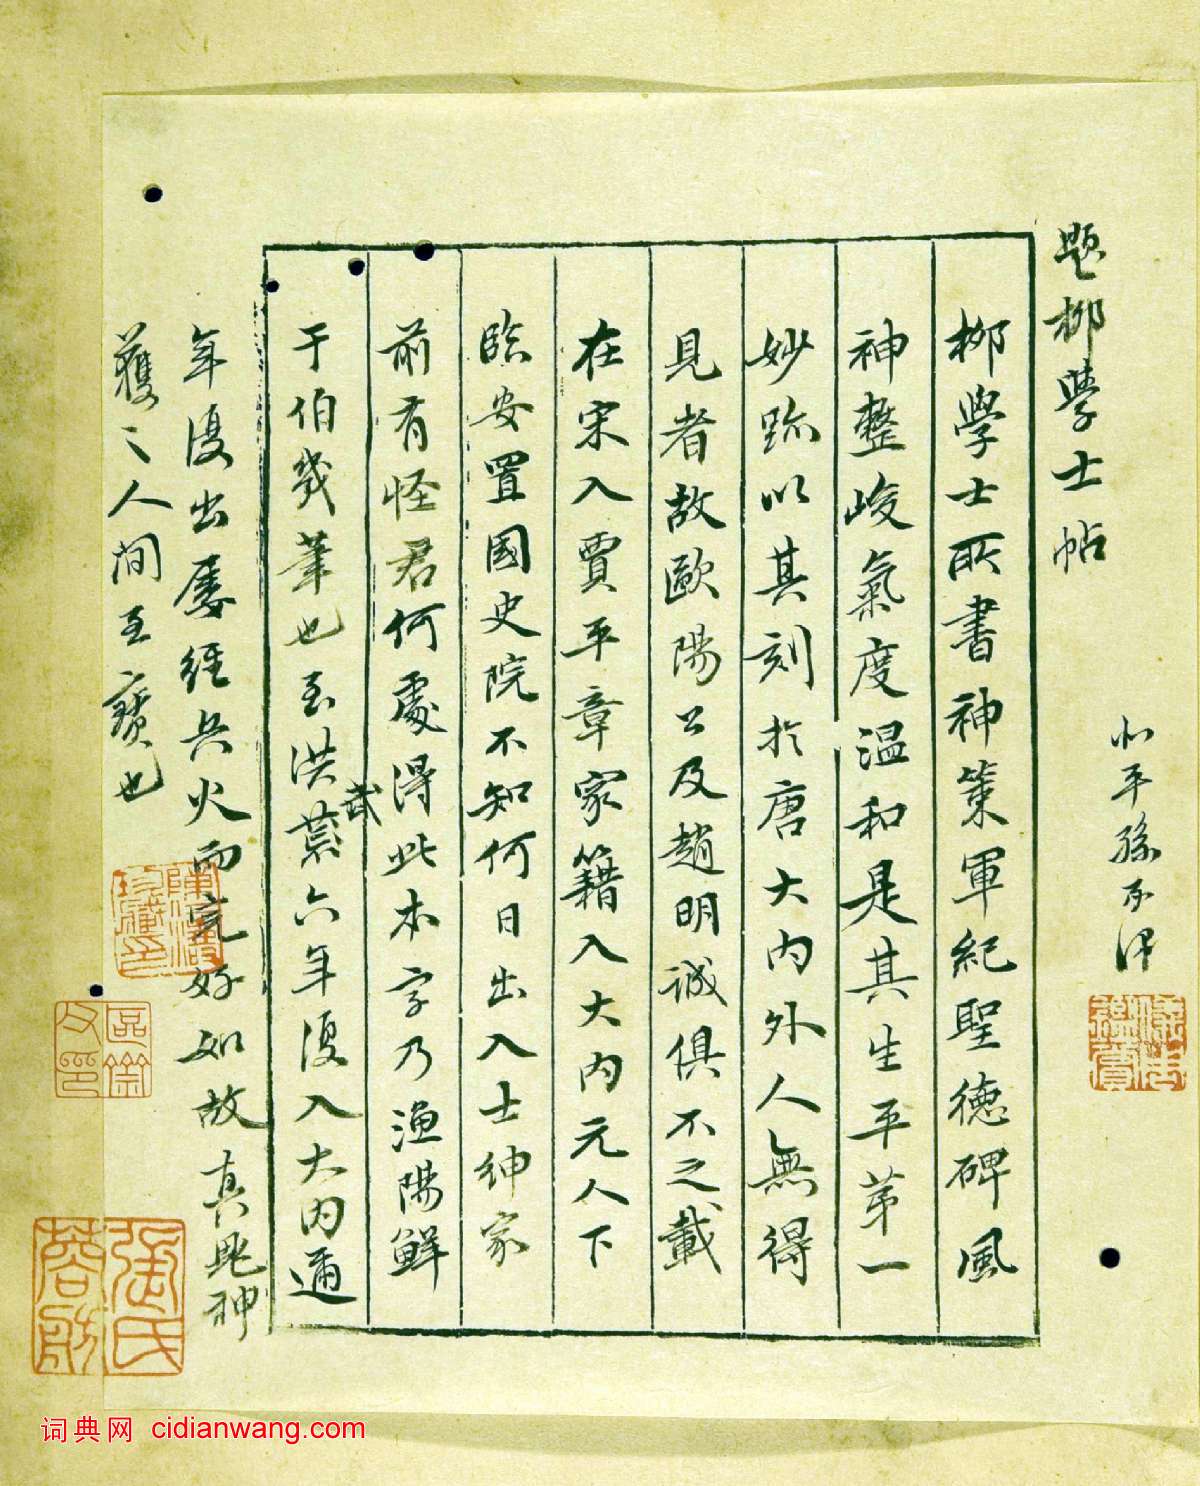 题柳學士帖
北平孫承澤
柳學士所書神策軍紀聖德碑風
神整峻氣度温和是其生平苐一
妙跡以其刻於唐大内外人無得
見者故歐陽公及趙明誠俱不之載
在宋入賈平章家籍入大内元人下
臨安置國史院不知何日出入士紳家
前有怪君何處得此本字乃漁陽鮮
于伯幾筆也至洪武六年復入大内邇
年復出屡經兵火而完好如故真鬼神
獲之人間至寶也
張氏
词典网 cidianwang.com